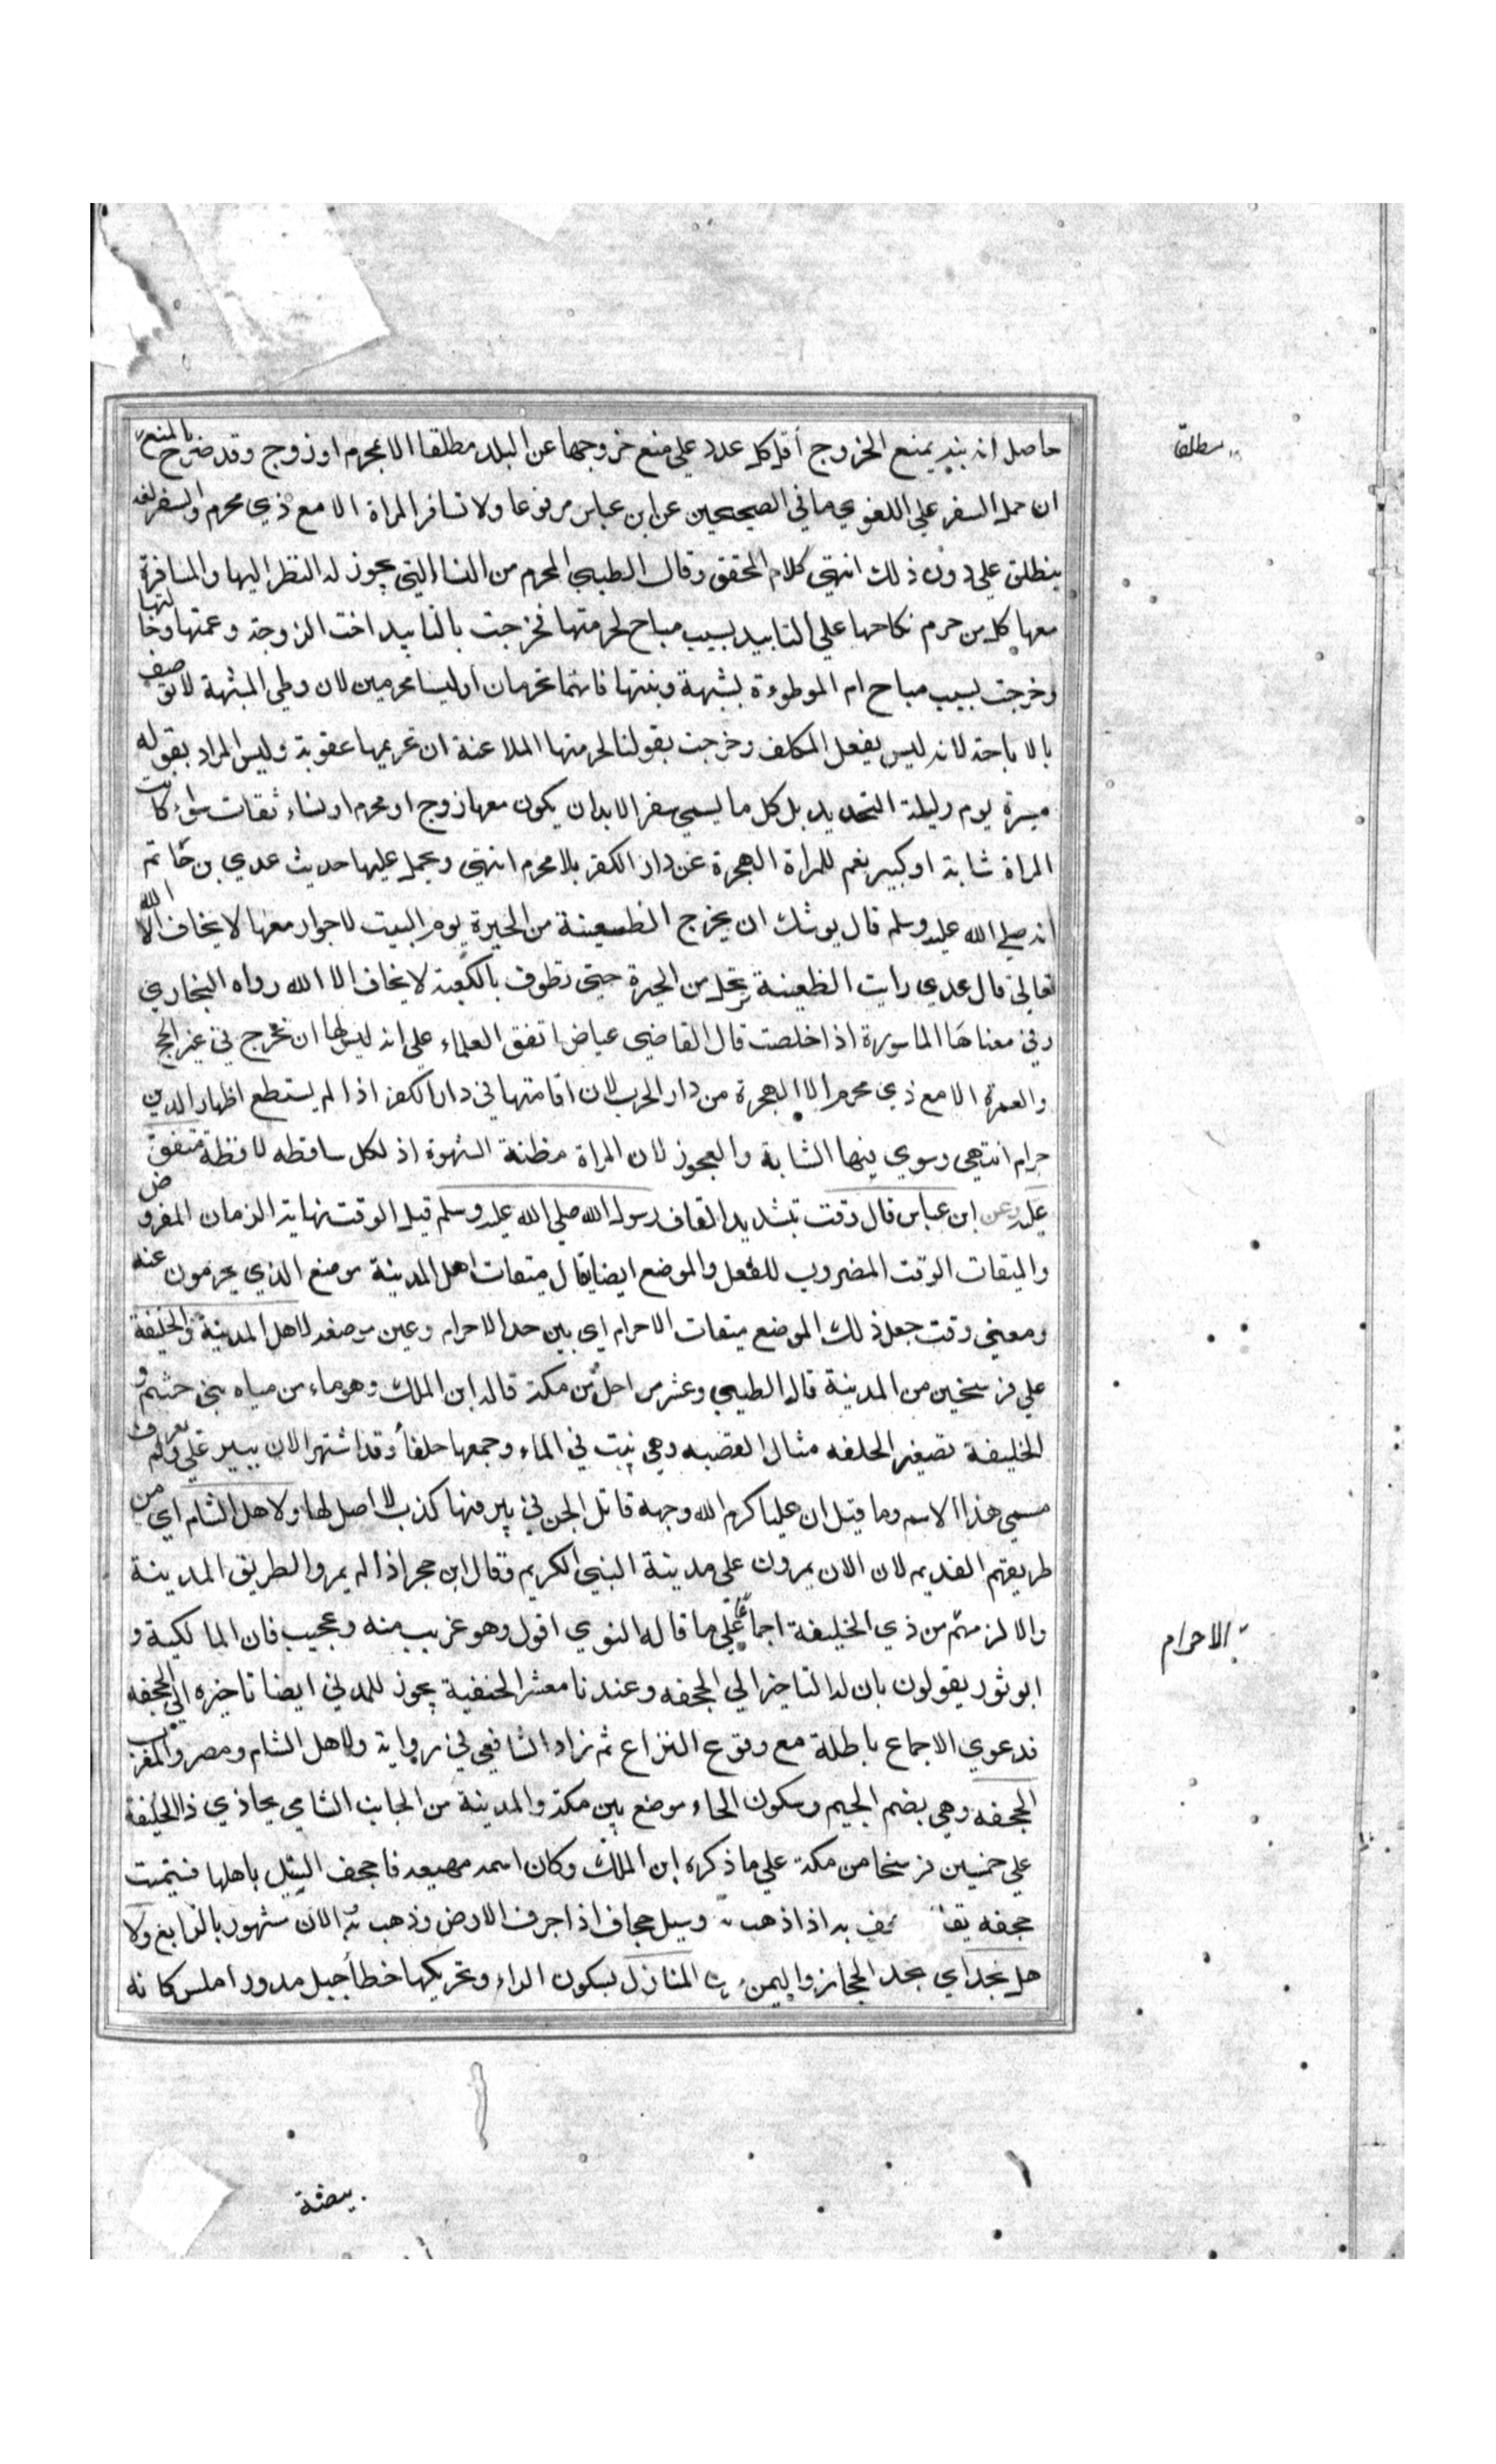 حاصل انه بند يمنع الخروج أقل كل عدد علي منع خروجها عن البلد مطلقا الا بمحرم او زوج وقد صرح بالمنع
ان حمل السفر علي اللغوي ما في الصحيحين عن ابن عباس مرفوعا ولا تسافر المراة الا مع ذي محرم والسفر لغة
ينطلق علي دون ذلك انتهي كلام المحقق وقال الطيبي المحرم من النسا التي يجوز له النظر اليها والمسافرة
معها كل من حرم نكاحها علي التابيد بسبب مباح لحرمتها فخرجت بالتابيد اخت الزوجة وعمتها وخالتها
وخرجت بسبب مباح ام الموطوءة بشبهة وبنتها فانهما تحرمان اوليسا محرمين لان وطي الشبهة لا توصف
بالاباحة لانه ليس بفعل المكلف وخرجت بقولنا لحرمتها الملاعنة ان تحريمها عقوبة وليس المراد بقوله
مسيرة يوم وليلة التحديد بل كل ما يسمي سفر الا بد ان يكون معها زوج او محرم او نساء ثقات سواء كانت
المراة شابة او كبير نعم للمراة الهجرة عن دار الكفر بلا محرم انتهي ويحمل عليها حديث عدي بن حاتم
انه صلي الله عليه وسلم قال يوشك ان يخرج الظعينة من الحيرة يوم البيت لا جوار معها لا يخاف الا الله
تعالي قال عدي رايت الظعينة ترتحل من الحيرة حتي تطوف بالكعبة لا يخاف الا الله رواه البخاري
وفي معناها الماسورة اذا خلصت قال القاضي عياض اتفق العلماء علي انه ليس لها ان تخرج في غير الحج
والعمرة الا مع ذي محرم الا الهجرة من دار الحرب لان اقامتها في دار الكفر اذا لم يستطع اظهار الدين
حرام انتهي وسوي فيها الشابة والعجوز لان المراة مظنة الشهوة اذ لكل ساقطه لاقطة متفق
عليه وعن ابن عباس قال وقت بتشديد القاف رسول الله صلي الله عليه وسلم قيل الوقت نهاية الزمان المفروض
والميقات الوقت المضروب للفعل والموضع ايضا يقال ميقات اهل المدينة موضع الذي يحرمون عنه
ومعني وقت جعل ذلك الموضع ميقات الاحرام اي بين حد الاحرام وعين موضعه لاهل المدينة ذا الخليفة
علي فرسخين من المدينة قاله الطيبي وعشر مراحل من مكة قاله ابن الملك وهو ماء من مياه بني حشم و
الخليفة تصغير الحلفه مثال القصبه وهي نبت في الماء وجمعها حلفأ وقد اشتهر الان ببير علي ولم يعرف
مسمي هذا الاسم وما قيل ان عليا كرم الله وجهه قاتل الجن في بير فيها كذب لا اصل لها ولاهل الشام اي من
طريقهم القديم لان الان يمرون علي مدينة النبي الكريم وقال ابن حجر اذا لم يمروا لطريق المدينة
والا لزمهم من ذي الخليفة اجماعا علي ما قاله النوي اقول وهو غريب منه وعجيب فان المالكية و
ابو ثور يقولون بان له التاخير الي الجحفه وعندنا معشر الحنفية يجوز للمدني ايضا تاخيره الي الجحفه
فدعوي الاجماع باطلة مع وقوع النزاع ثم زاد الشافعي في رواية ولاهل الشام ومصر والمغرب
الجحفه وهي بضم الجيم وسكون الحاء موضع بين مكة والمدينة من الجانب الشامي يحاذي ذا الخليفة
علي خمسين فرسخا من مكة علي ما ذكره ابن الملك وكان اسمه مهيعه فاجحف السيل باهلها فسميت
جحفه يقا حف به اذا ذهب به وسيل جحاف اذا جرف الارض وذهب به الان مشهور بالرابغ ولا
هل نجد اي نجد الحجاز واليمن المنازل بسكون الراء وتحريكها خطأ جبل مدور املس كانه
مطلقا
الاحرام
بيضة